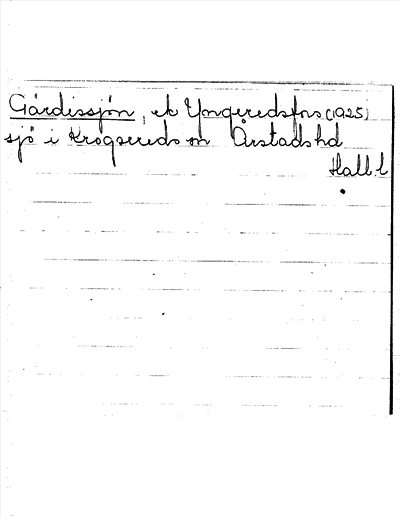 Gårdissjön, ek Yngeredsfors (1925)
sjö i Krogsereds sn Årstads hd
Hall. l